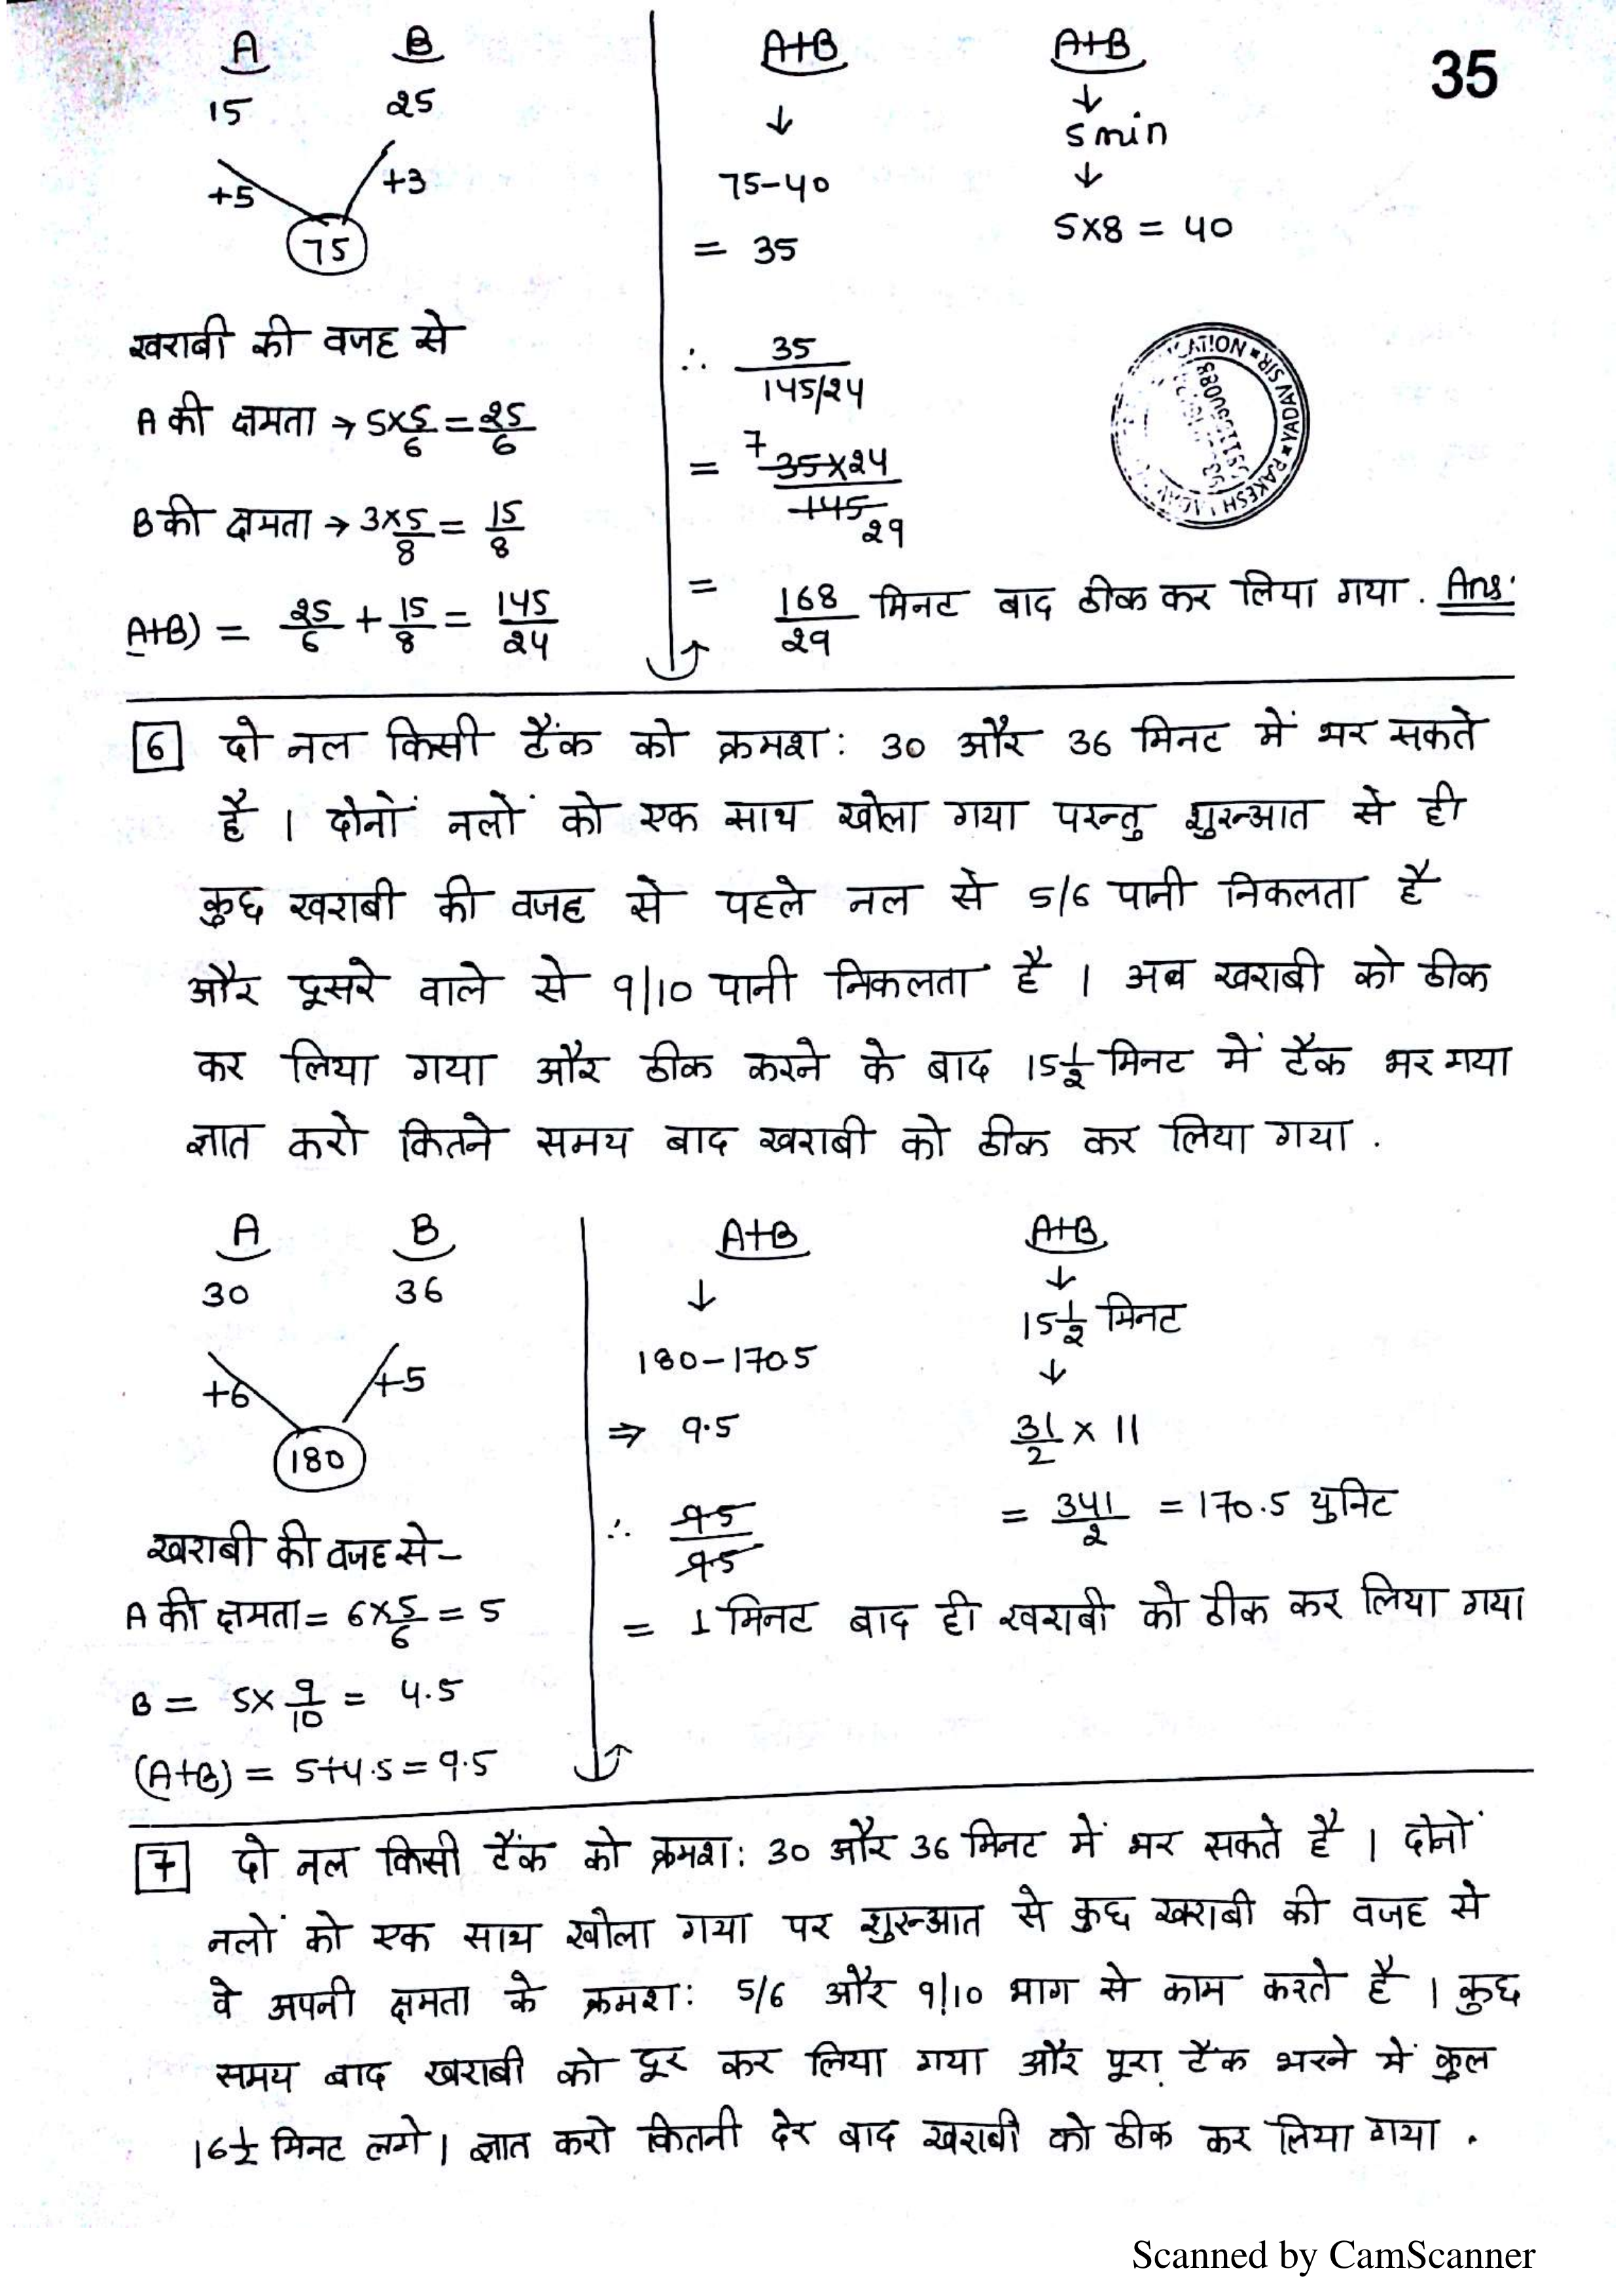 35
A B
15 25
+5 +3
75
खराबी की वजह से
A की क्षमता → 5×5/6 = 25/6
B की क्षमता → 3×5/8 = 15/8
A+B) = 25/6 + 15/8 = 145/24
A+B
↓
75-40
= 35
∴ 35/145/24
= 7 35×24/145 29
= 168/29 मिनट बाद ठीक कर लिया गया. Ans:
A+B
↓
5 min
↓
5×8 = 40
YADAV SIR
RAKESH
6 दो नल किसी टैंक को क्रमश: 30 और 36 मिनट में भर सकते
है । दोनों नलों को एक साथ खोला गया परन्तु शुरुआत से ही
कुछ खराबी की वजह से पहले नल से 5/6 पानी निकलता है
और दूसरे वाले से 9/10 पानी निकलता है । अब खराबी को ठीक
कर लिया गया और ठीक करने के बाद 15 1/2 मिनट में टैंक भर गया
ज्ञात करो कितने समय बाद खराबी को ठीक कर लिया गया .
A B
30 36
+6 +5
180
खराबी की वजह से-
A की क्षमता = 6×5/6 = 5
B = 5×9/10 = 4.5
(A+B) = 5+4.5 = 9.5
A+B
↓
180-170.5
⇒ 9.5
∴ 9.5/9.5
= 1 मिनट बाद ही खराबी को ठीक कर लिया गया
A+B
↓
15 1/2 मिनट
↓
31/2 × 11
= 341/2 = 170.5 युनिट
7 दो नल किसी टैंक को क्रमश: 30 और 36 मिनट में भर सकते है । दोनों
नलों को एक साथ खोला गया पर शुरुआत से कुछ खराबी की वजह से
वे अपनी क्षमता के क्रमश: 5/6 और 9/10 भाग से काम करते है । कुछ
समय बाद खराबी को दूर कर लिया गया और पूरा टैंक भरने में कुल
16 1/2 मिनट लगे । ज्ञात करो कितनी देर बाद खराबी को ठीक कर लिया गया .
Scanned by CamScanner